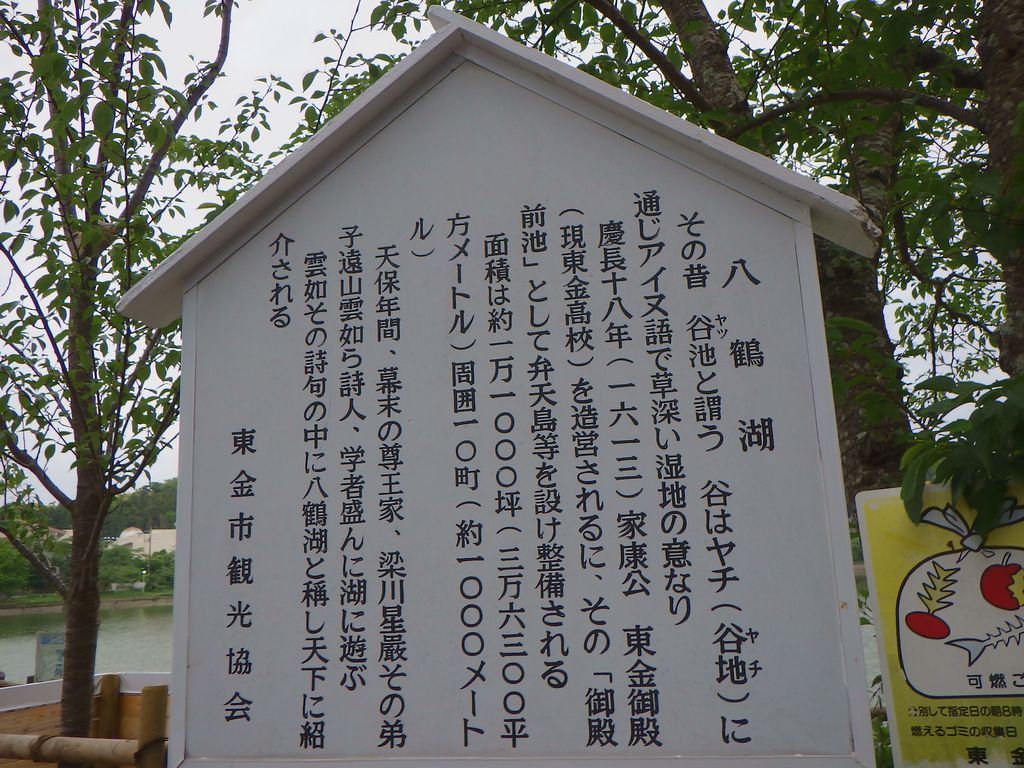 八鶴湖
その昔 谷池と謂う 谷はヤチ(谷地)に
ヤツ
ヤチ
通じアイヌ語で草深い湿地の意なり
慶長十八年(一六一三)家康公 東金御殿
(現東金高校)を造営されるに、その「御殿
前池」として弁天島等を設け整備される
面積は約一万一〇〇〇坪(三万六三〇〇平
方メートル)周囲一〇町(約一〇〇〇メート
ル)
天保年間、幕末の尊王家、梁川星巌その弟
子遠山雲如ら詩人、学者盛んに湖に遊ぶ
雲如その詩句の中に八鶴湖と稱し天下に紹
介される
東金市観光協会
可燃ご
分別して指定日の朝8時
燃えるゴミの収集日
東金